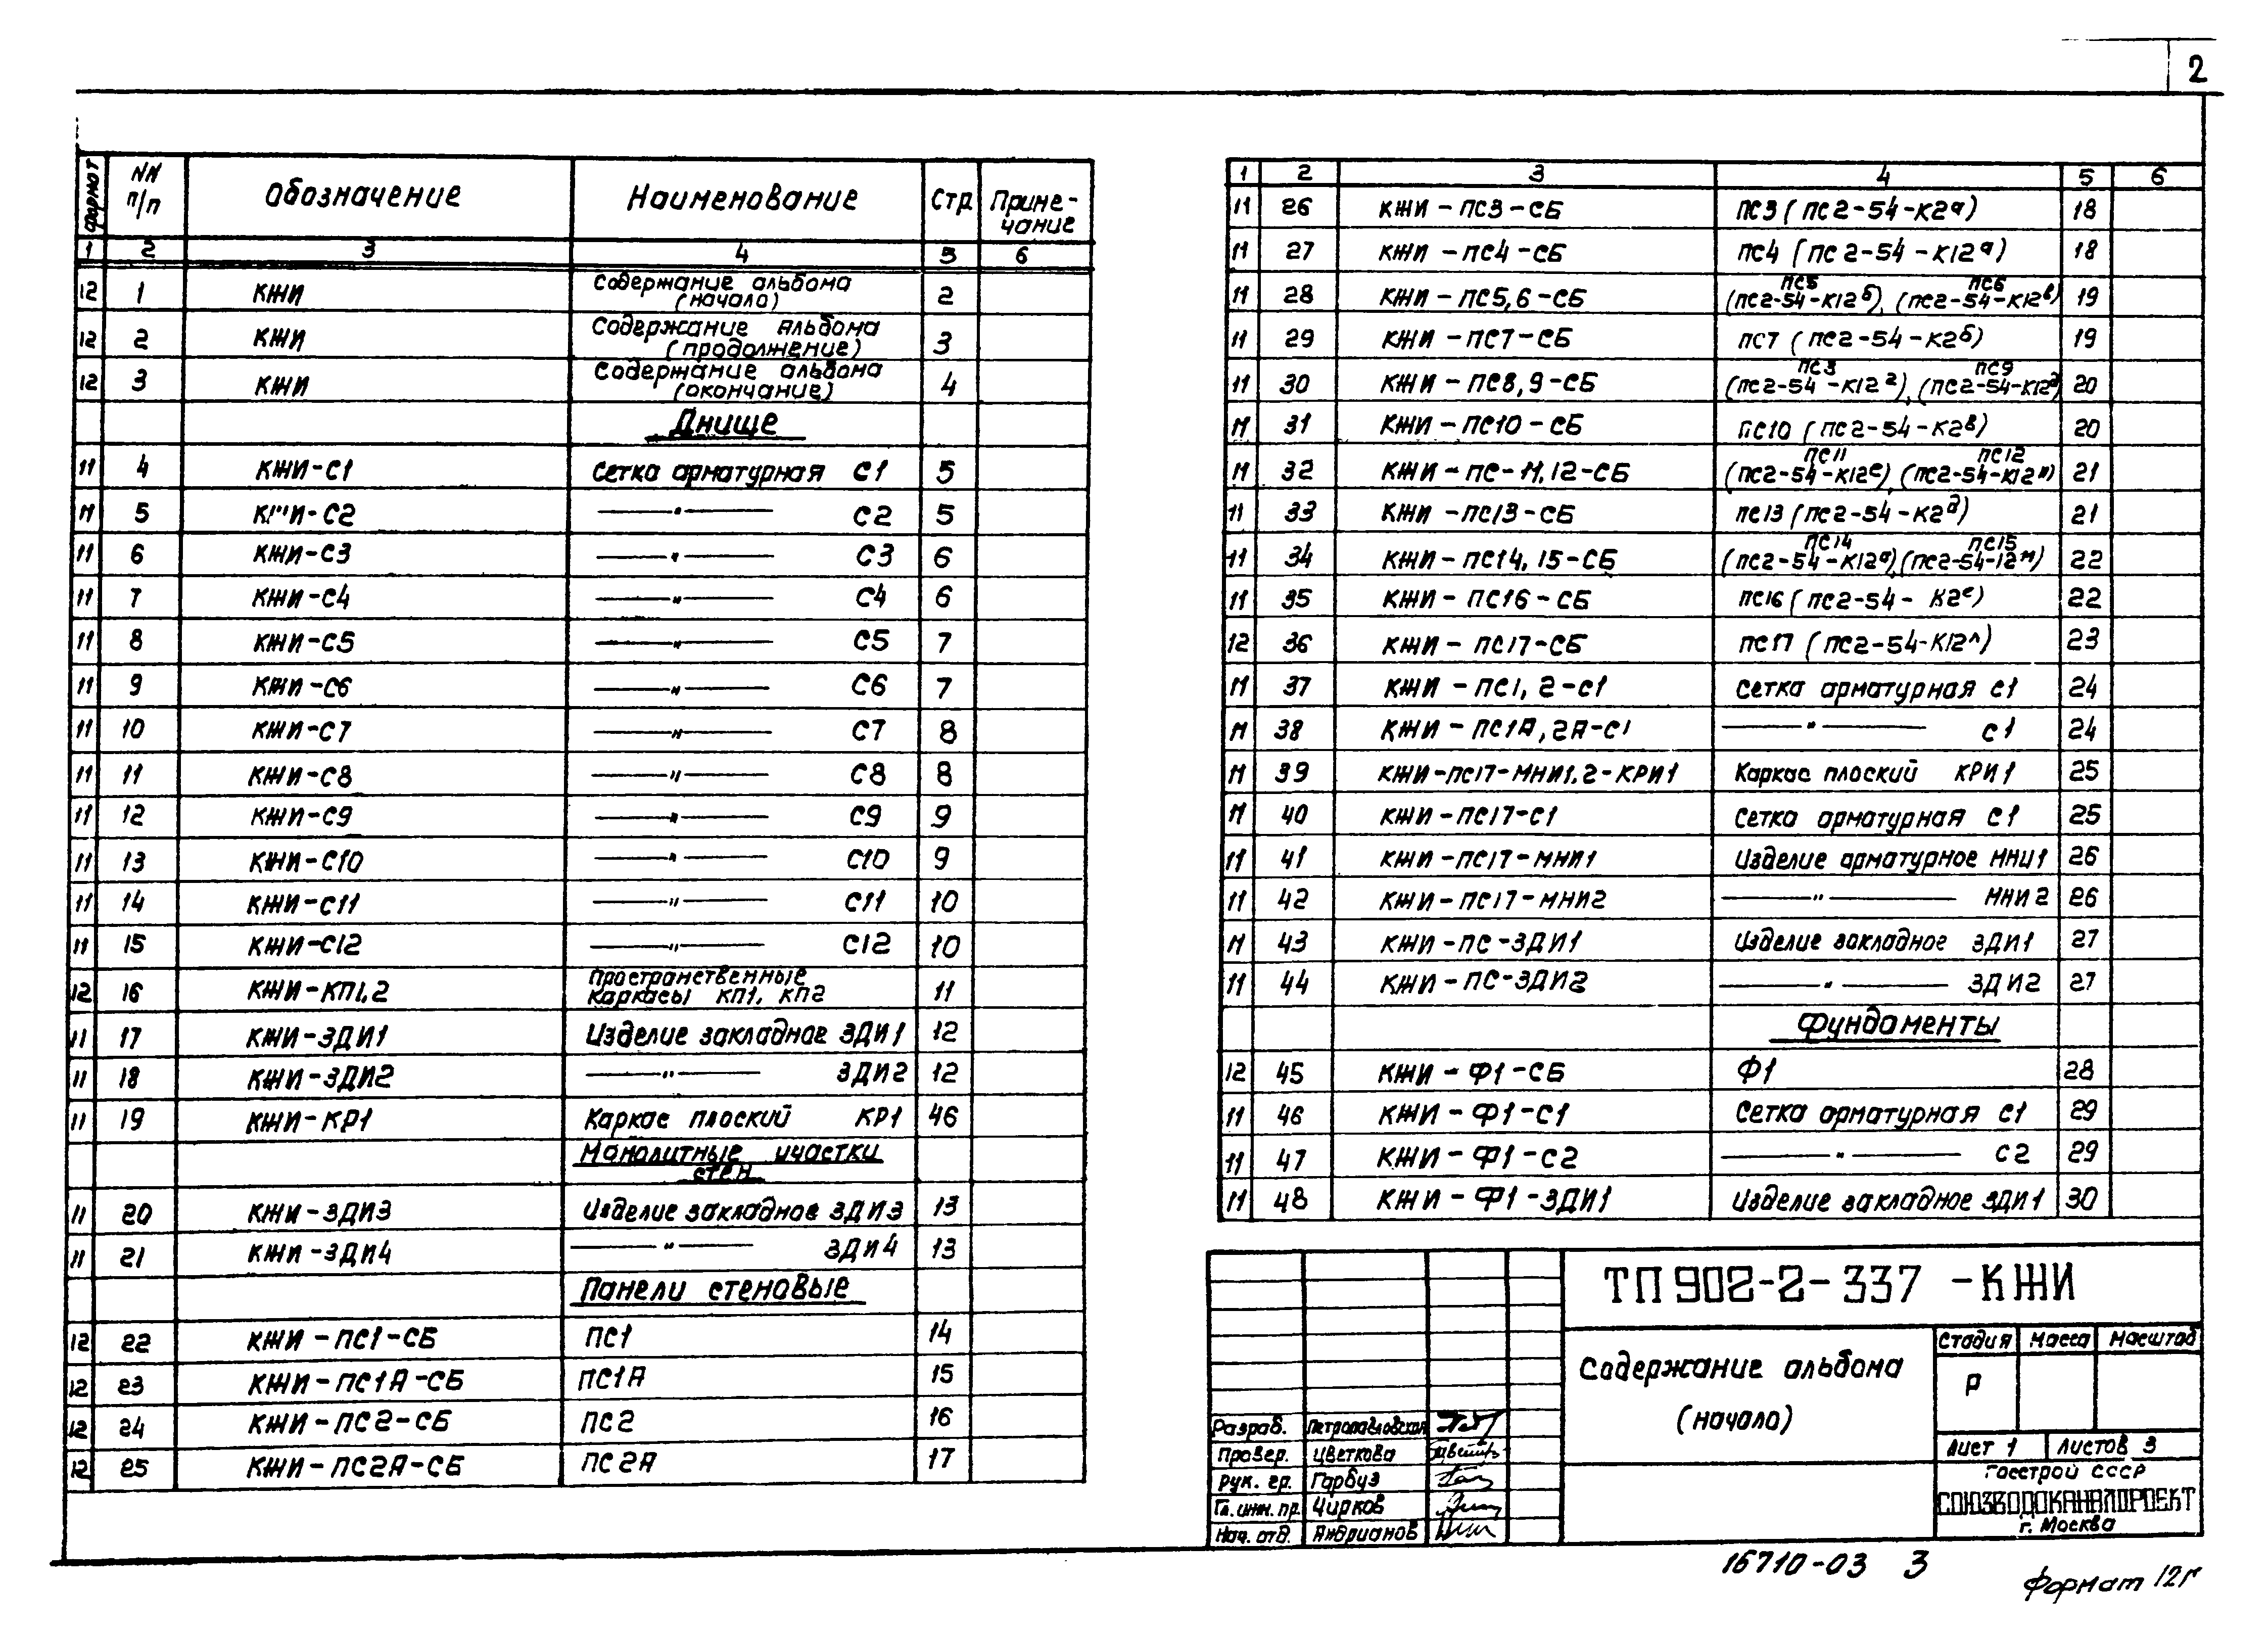 2
Формат NN п/п Обозначение Наименование Стр Приме-
чание
1 2 3 4 5 6
12 1 КЖИ Содержание альбома (начало) 2
12 2 КЖИ Содержание альбома (продолжение) 3
12 3 КЖИ Содержание альбома (окончание) 4
Днище
11 4 КЖИ-С1 Сетка арматурная С1 5
11 5 КЖИ-С2 —"— С2 5
11 6 КЖИ-С3 —"— С3 6
11 7 КЖИ-С4 —"— С4 6
11 8 КЖИ-С5 —"— С5 7
11 9 КЖИ-С6 —"— С6 7
11 10 КЖИ-С7 —"— С7 8
11 11 КЖИ-С8 —"— С8 8
11 12 КЖИ-С9 —"— С9 9
11 13 КЖИ-С10 —"— С10 9
11 14 КЖИ-С11 —"— С11 10
11 15 КЖИ-С12 —"— С12 10
12 16 КЖИ-КП1,2 Пространственные каркасы КП1, КП2 11
11 17 КЖИ-ЗДИ1 Изделие закладное ЗДИ1 12
11 18 КЖИ-ЗДИ2 —"— ЗДИ2 12
11 19 КЖИ-КР1 Каркас плоский КР1 46
Монолитные участки
стен
11 20 КЖИ-ЗДИ3 Изделие закладное ЗДИ3 13
11 21 КЖИ-ЗДИ4 —"— ЗДИ4 13
Панели стеновые
12 22 КЖИ-ПС1-СБ ПС1 14
12 23 КЖИ-ПС1А-СБ ПС1А 15
12 24 КЖИ-ПС2-СБ ПС2 16
12 25 КЖИ-ПС2А-СБ ПС2А 17
1 2 3 4 5 6
11 26 КЖИ-ПС3-СБ ПС3 (ПС2-54-К2а) 18
11 27 КЖИ-ПС4-СБ ПС4 (ПС2-54-К12а) 18
11 28 КЖИ-ПС5,6-СБ ПС5 (ПС2-54-К12б), ПС6 (ПС2-54-К12в) 19
11 29 КЖИ-ПС7-СБ ПС7 (ПС2-54-К2б) 19
11 30 КЖИ-ПС8,9-СБ ПС3 (ПС2-54-К12г), ПС9 (ПС2-54-К12д) 20
11 31 КЖИ-ПС10-СБ ПС10 (ПС2-54-К2в) 20
11 32 КЖИ-ПС-11,12-СБ ПС11 (ПС2-54-К12е), ПС12 (ПС2-54-К12и) 21
11 33 КЖИ-ПС13-СБ ПС13 (ПС2-54-К2д) 21
11 34 КЖИ-ПС14,15-СБ ПС14 (ПС2-54-К12а), ПС15 (ПС2-54-12м) 22
11 35 КЖИ-ПС16-СБ ПС16 (ПС2-54-К2е) 22
12 36 КЖИ-ПС17-СБ ПС17 (ПС2-54-К12л) 23
11 37 КЖИ-ПС1,2-С1 Сетка арматурная С1 24
11 38 КЖИ-ПС1А,2А-С1 —"— С1 24
11 39 КЖИ-ПС17-МНИ1,2-КРИ1 Каркас плоский КРИ1 25
11 40 КЖИ-ПС17-С1 Сетка арматурная С1 25
11 41 КЖИ-ПС17-МНИ1 Изделие арматурное МНИ1 26
11 42 КЖИ-ПС17-МНИ2 —"— МНИ2 26
11 43 КЖИ-ПС-ЗДИ1 Изделие закладное ЗДИ1 27
11 44 КЖИ-ПС-ЗДИ2 —"— ЗДИ2 27
Фундаменты
12 45 КЖИ-Ф1-СБ Ф1 28
11 46 КЖИ-Ф1-С1 Сетка арматурная С1 29
11 47 КЖИ-Ф1-С2 —"— С2 29
11 48 КЖИ-Ф1-ЗДИ1 Изделие закладное ЗДИ1 30
ТП 902-2-337 -КЖИ
Содержание альбома
(начало)
Стадия Масса Масштаб
Р
Лист 1 Листов 3
Госстрой СССР
СОЮЗВОДОКАНАЛПРОЕКТ
г. Москва
Разраб. Петропавловская
Провер. Цветкова
Рук. гр. Гарбуз
Гл. инж. пр. Чирков
Нач. отд. Андрианов
16710-03 3
Формат 12г